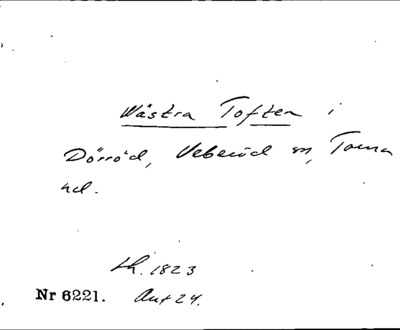 Wästra Toften i
Dörröd, Veberöd sn, Torna
hd.
Lh. 1823
Nr 6221. Akt 24.